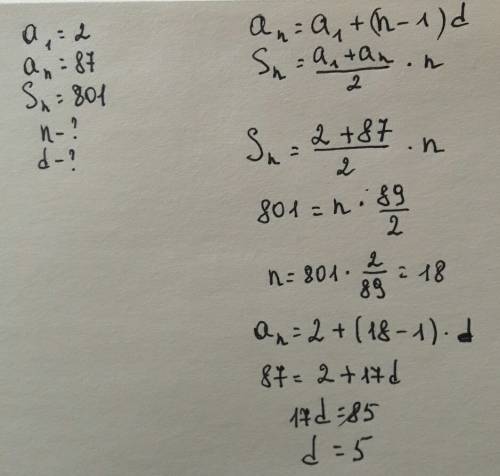 a₁ = 2
aₙ = 87
Sₙ = 801
n - ?
d - ?
aₙ = a₁ + (n - 1) d
Sₙ = (a₁ + aₙ)/2 · n
Sₙ = (2 + 87)/2 · n
801 = n · 89/2
n = 801 · 2/89 = 18
aₙ = 2 + (18 - 1) · d
87 = 2 + 17d
17d = 85
d = 5